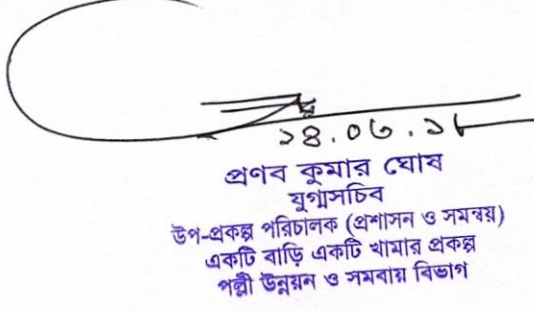 ২৪.০৬.১৮
প্রণব কুমার ঘোষ
যুগ্মসচিব
উপ-প্রকল্প পরিচালক (প্রশাসন ও সমন্বয়)
একটি বাড়ি একটি খামার প্রকল্প
পল্লী উন্নয়ন ও সমবায় বিভাগ